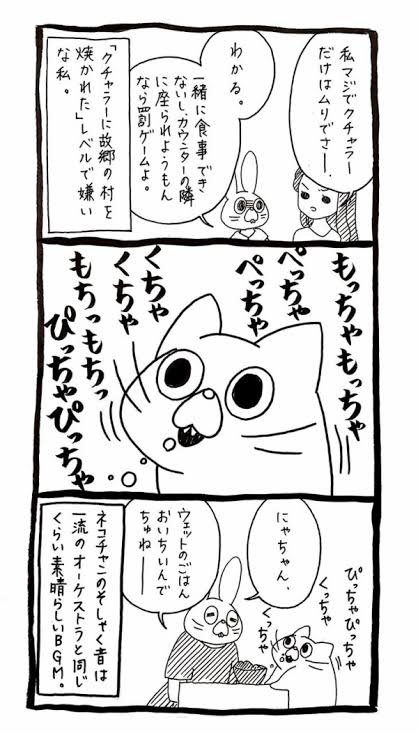 私マジでクチャラー
だけはムりでさー、
わかる。
一緒に食事でき
ないし、カウンターの隣
に座られようもん
なら罰ゲームよ。
「クチャラーに故郷の村を
焼かれた」レベルで嫌い
な私。
もっちゃもっちゃ
ぺっちゃ
ぺっちゃ
くちゃ
くちゃ
もちっもちっ
ぴっちゃぴっちゃ
にゃちゃん、
ウェットのごはん
おいちいんで
ちゅねー
ぴっちゃぴっちゃ
くっちゃ
くっちゃ
ネコチャンのそしゃく音は
一流のオーケストラと同じ
くらい素晴らしいBGM。